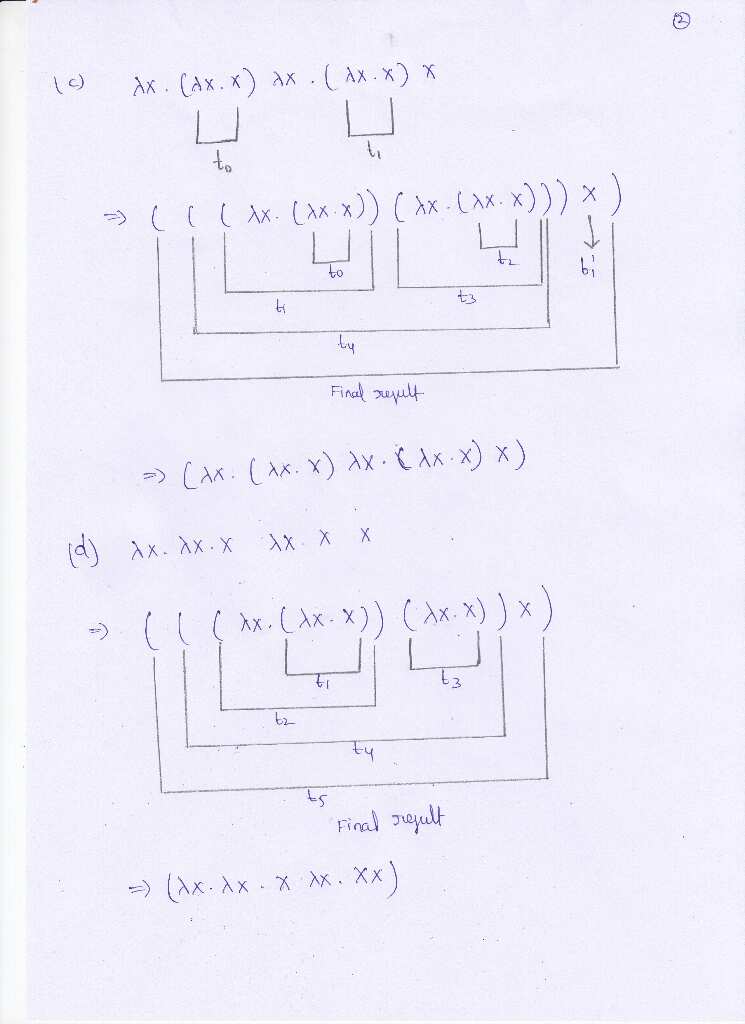 ②
(c) λx. (λx.x) λx. (λx.x) x
t₀ t₁
⇒ ( ( ( λx. (λx.x)) ( λx. (λx.x))) ) x )
t₀ t₂ bᵢ
t₁ t₃
t₄
Final result
⇒ (λx. (λx. x) λx. (λx.x) x)
(d) λx. λx.x λx. x x
⇒ ( ( ( λx. (λx.x)) (λx.x) ) x )
t₁ t₃
t₂
t₄
t₅
Final result
⇒ (λx. λx. x λx. xx)